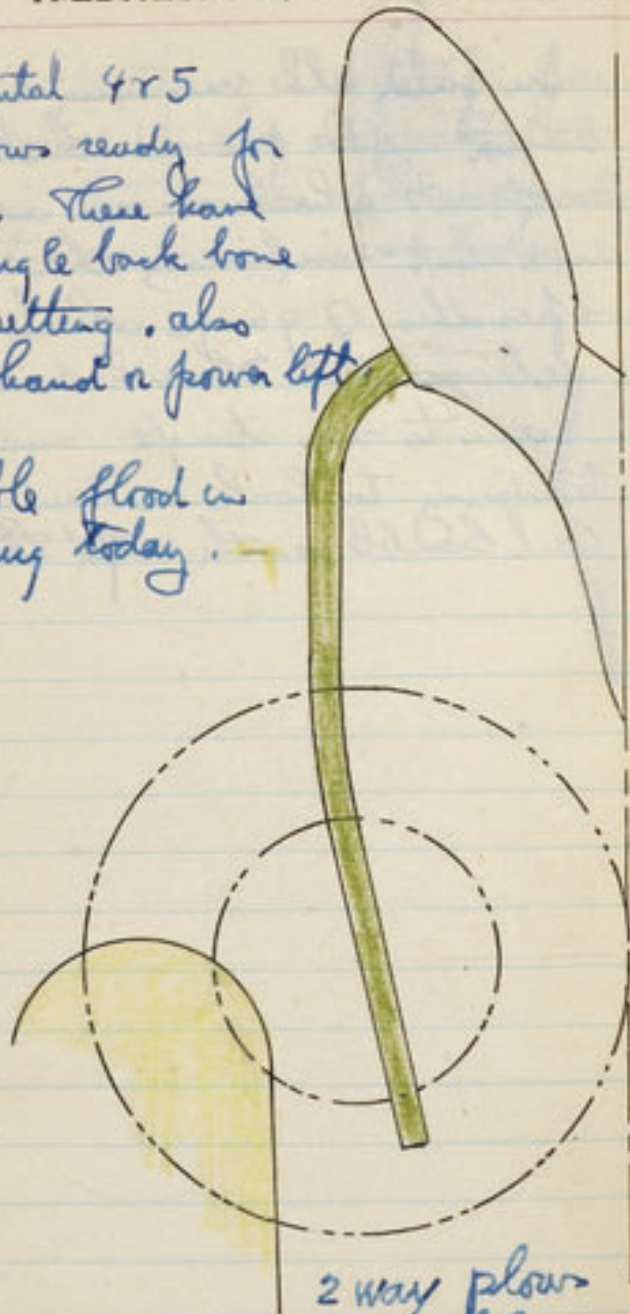 4 & 5
ready for
These have
back bone
setting. also
hand or power lift.
flood in
today. -
2 way plows